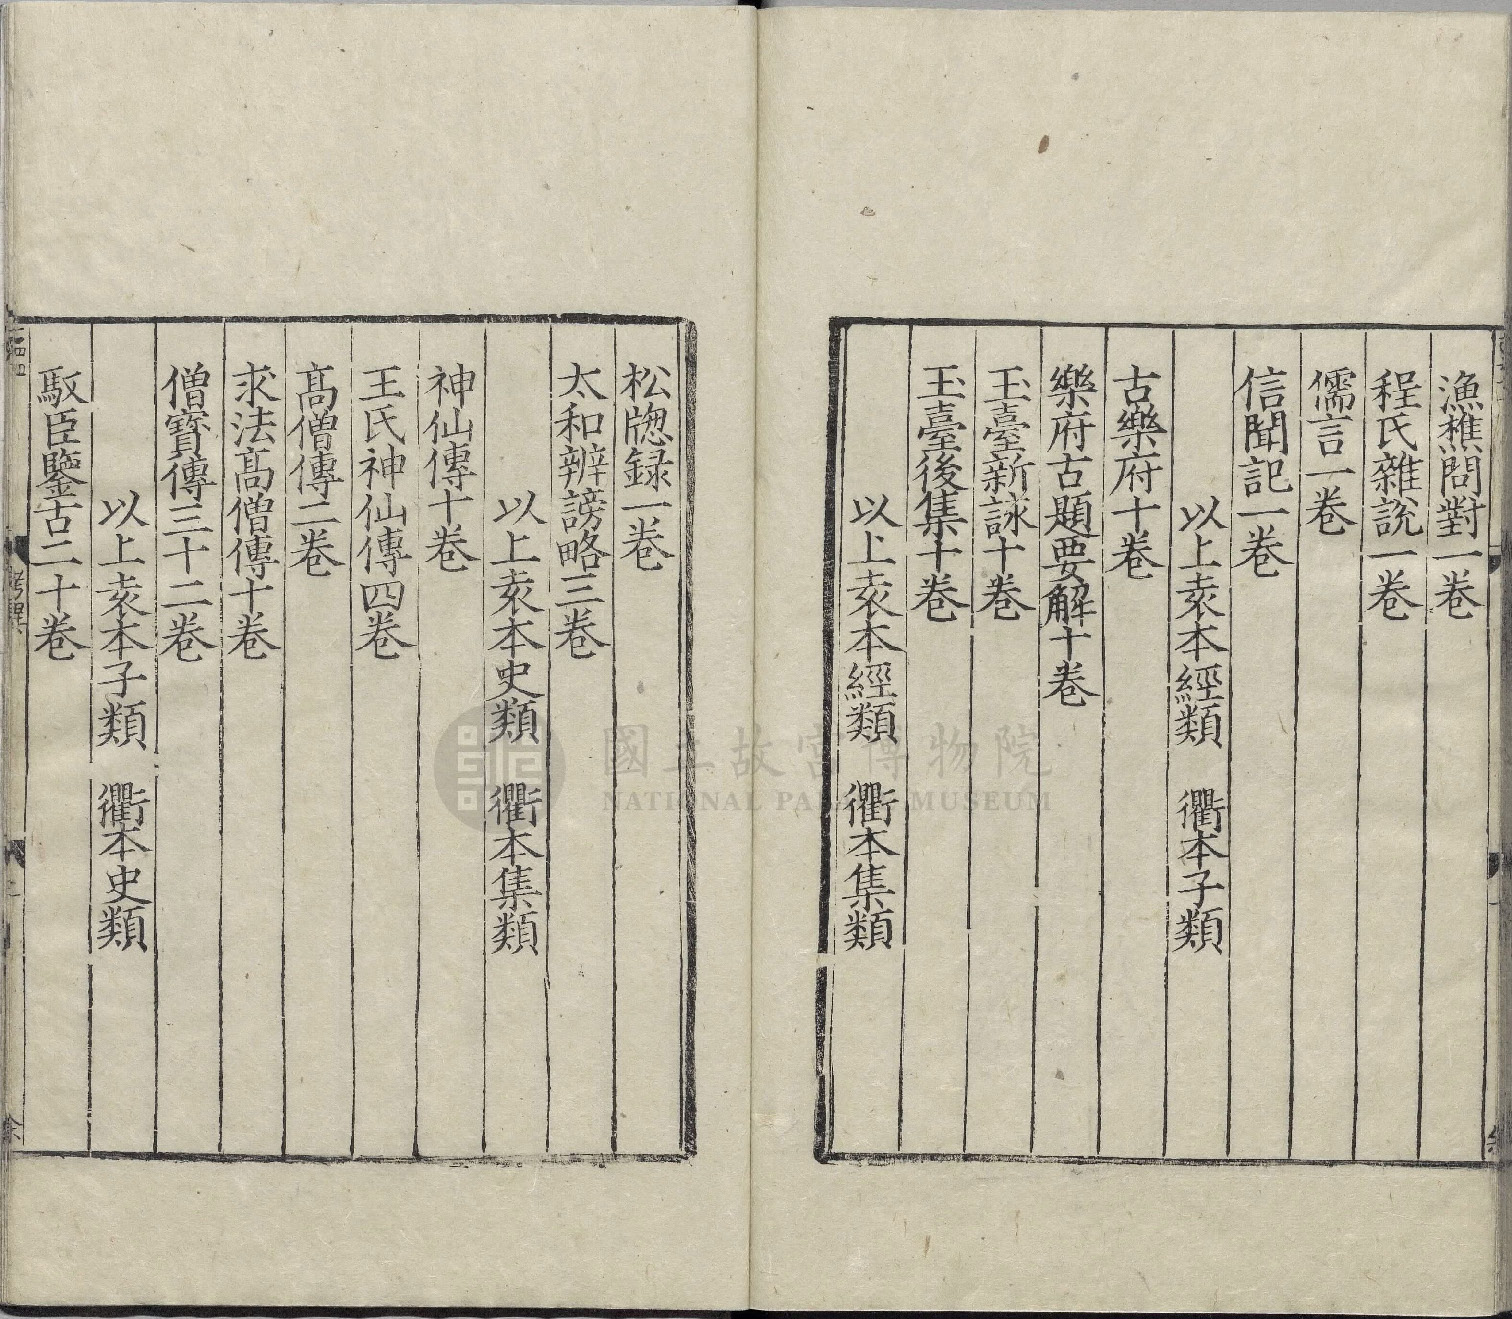 漁樵問對一巻
程氏雜說一巻
儒言一巻
信聞記一巻
以上袁本經類　衢本子類
古樂府十巻
樂府古題要解十巻
玉臺新詠十巻
玉臺後集十巻
以上袁本經類　衢本集類
松牎録一巻
太和辨謗略三巻
以上袁本史類　衢本集類
神仙傳十巻
王氏神仙傳四巻
髙僧傳二巻
求法髙僧傳十巻
僧寳傳三十二巻
以上袁本子類　衢本史類
馭臣鑒古二十巻
考異
國立故宮博物院
NATIONAL PALACE MUSEUM